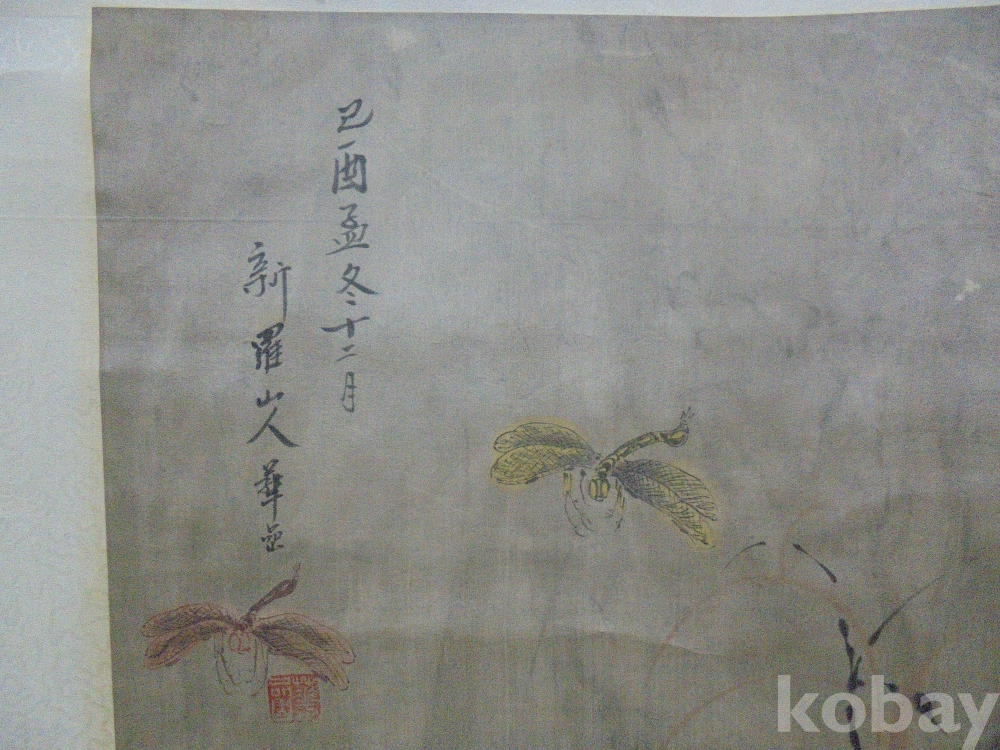 己酉孟冬十二月
新羅山人華嵒
kobay